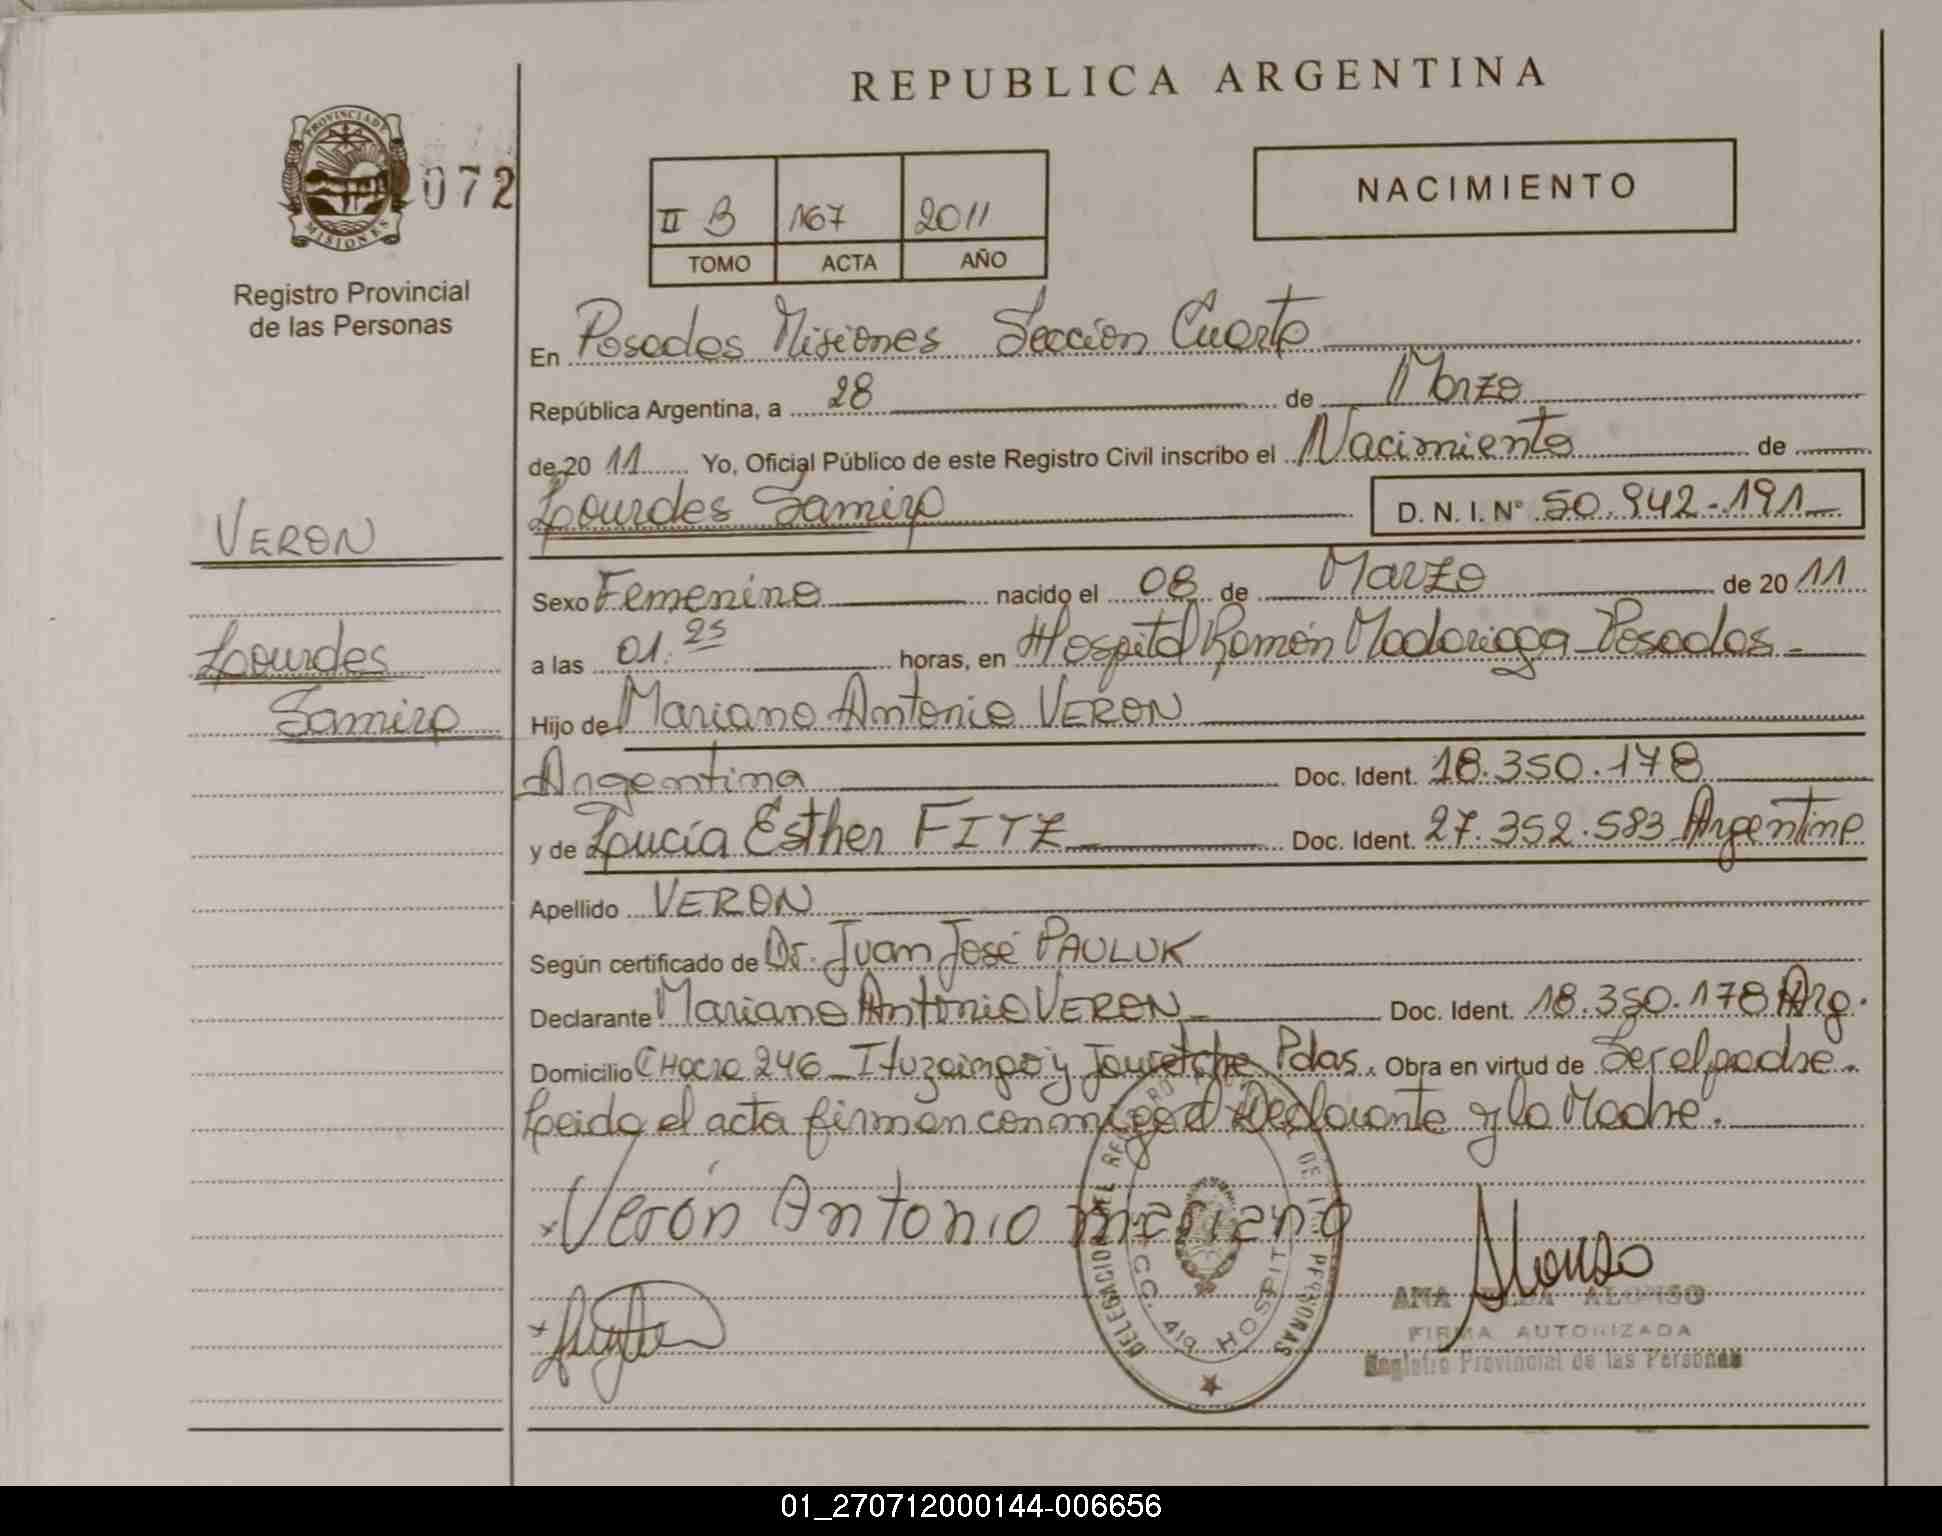 REPUBLICA ARGENTINA
PROVINCIA DE
MISIONES
072
Registro Provincial
de las Personas
II B 167 2011
TOMO ACTA AÑO
NACIMIENTO
En Posadas Misiones Sección Cuarta
República Argentina, a 28 de Marzo
de 20 11 Yo, Oficial Público de este Registro Civil inscribo el Nacimiento de
Lourdes Samira D. N. I. N° 50.942-191
VERON
Sexo Femenino nacido el 08 de Marzo de 20 11
Lourdes
a las 01.25 horas, en Hospital Ramón Madariaga - Posadas -
Samira
Hijo de Mariano Antonio VERON
Argentina Doc. Ident. 18.350.178
y de Lucía Esther FITZ Doc. Ident. 27.352.583 Argentina
Apellido VERON
Según certificado de Dr. Juan José PAULUK
Declarante Mariano Antonio VERON Doc. Ident. 18.350.178 Arg.
Domicilio CHacra 246 - Ituzaingo y Jauretche Pdas. Obra en virtud de Ser el padre.
Leida el acta firman conmigo el Declarante y la Madre.
x Verón Antonio mariano
DELEGACION DEL DE LAS PERSONAS
SECC. 419 HOSPIT
Alonso
ANA ALONSO
FIRMA AUTORIZADA
Registro Provincial de las Personas
01_270712000144-006656